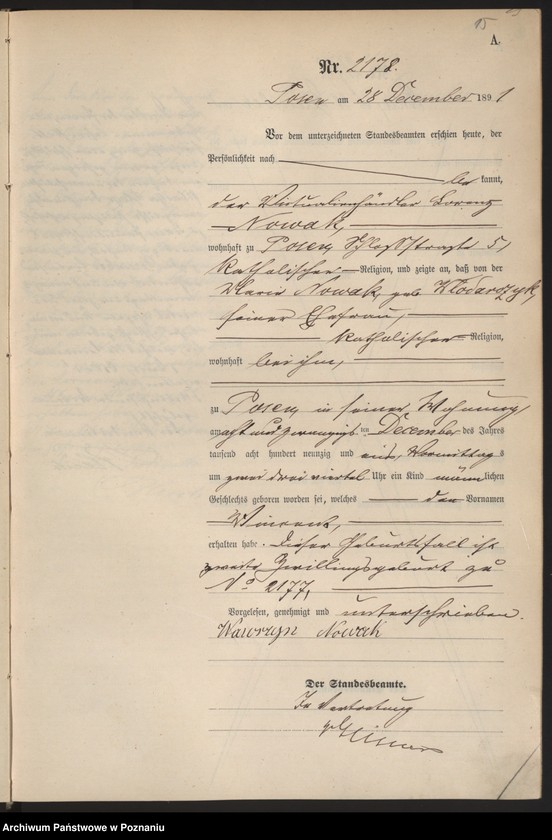 15
A.
Nr. 2178.
Posen am 28 December 1891
Vor dem unterzeichneten Standesbeamten erschien heute, der
Persönlichkeit nach
be kannt,
der Victualienhändler Lorenz
Nowak,
wohnhaft zu Posen, Schloßstraße 5,
katholischer Religion, und zeigte an, daß von der
Maria Nowak, geb. Włodarczyk,
seiner Ehefrau,
katholischer Religion,
wohnhaft bei ihm,
zu Posen, in seiner Wohnung,
am acht und zwanzigsten December des Jahres
tausend acht hundert neunzig und eins, Vormittags
um zwei drei viertel Uhr ein Kind männlichen
Geschlechts geboren worden sei, welches den Vornamen
Vincent,
erhalten habe. Dieser Geburtsfall ist
zweite Zwillingsgeburt zu
No 2177,
Vorgelesen, genehmigt und unterschrieben.
Wawrzyn Nowak
Der Standesbeamte.
In Vertretung
Archiwum Państwowe w Poznaniu